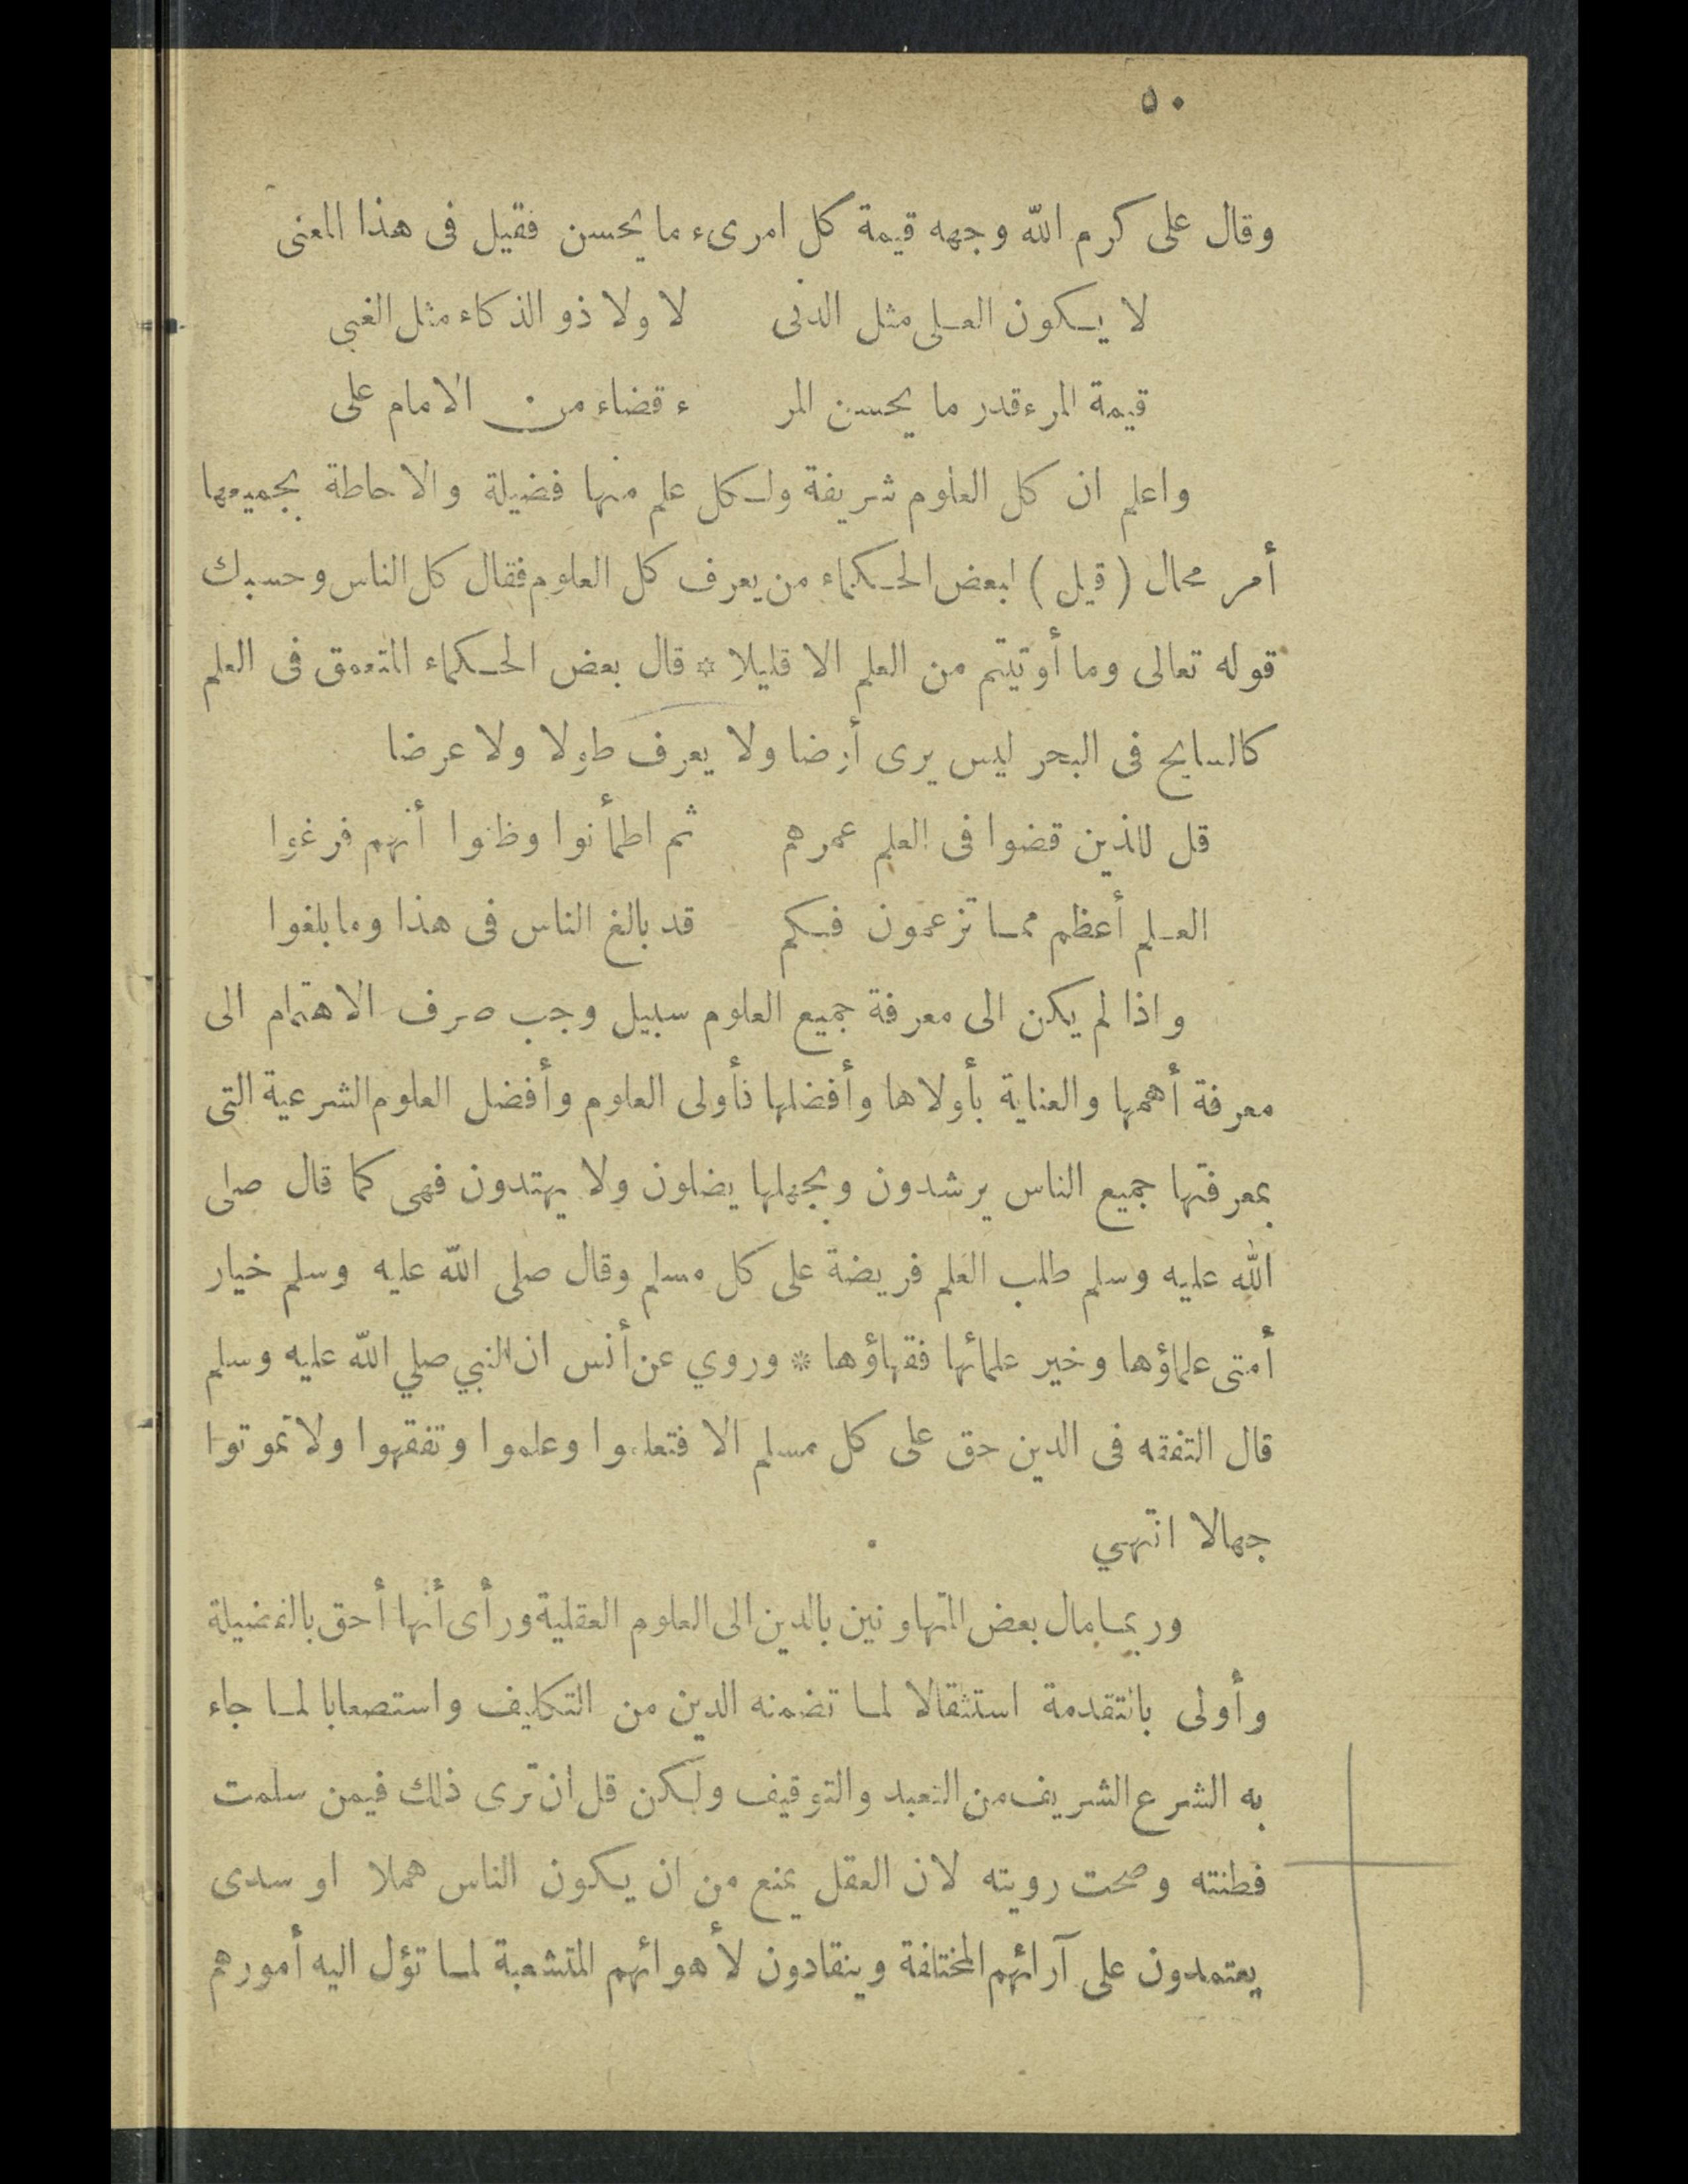 ٥٠
وقال على كرم الله وجهه قيمة كل امرىء ما يحسن فقيل فى هذا المعنى
لا يكون العلى مثل الدنى لا ولا ذو الذكاء مثل الغبى
قيمة المرء قدر ما يحسن المر ء قضاء من الامام على
واعلم ان كل العلوم شريفة ولكل علم منها فضيلة والاحاطة بجميعها
أمر محال (قيل) لبعض الحكماء من يعرف كل العلوم فقال كل الناس وحسبك
قوله تعالى وما أوتيتم من العلم الا قليلا * قال بعض الحكماء المتعمق فى العلم
كالسابح فى البحر ليس يرى أرضا ولا يعرف طولا ولا عرضا
قل للذين قضوا فى العلم عمرهم ثم اطمأنوا وظنوا أنهم فرغوا
العلم أعظم مما تزعمون فكم قد بالغ الناس فى هذا وما بلغوا
واذا لم يكن الى معرفة جميع العلوم سبيل وجب صرف الاهتمام الى
معرفة أهمها والعناية بأولاها وأفضلها فأولى العلوم وأفضل العلوم الشرعية التى
بمعرفتها جميع الناس يرشدون وبجهلها يضلون ولا يهتدون فهى كما قال صلى
الله عليه وسلم طلب العلم فريضة على كل مسلم وقال صلى الله عليه وسلم خيار
أمتى علماؤها وخير علمائها فقهاؤها * وروي عن أنس ان النبي صلي الله عليه وسلم
قال التفقه فى الدين حق على كل مسلم الا فتعلموا وعلموا وتفقهوا ولا تموتوا
جهالا انتهي
وربما مال بعض المتهاونين بالدين الى العلوم العقلية ورأى أنها أحق بالفضيلة
وأولى بالتقدمة استثقالا لما تضمنه الدين من التكليف واستصعابا لما جاء
به الشرع الشريف من التعبد والتوقيف ولكن قل ان ترى ذلك فيمن سلمت
فطنته وصحت رويته لان العقل يمنع من ان يكون الناس هملا او سدى
يعتمدون على آرائهم المختلفة وينقادون لأهوائهم المتشعبة لما تؤل اليه أمورهم